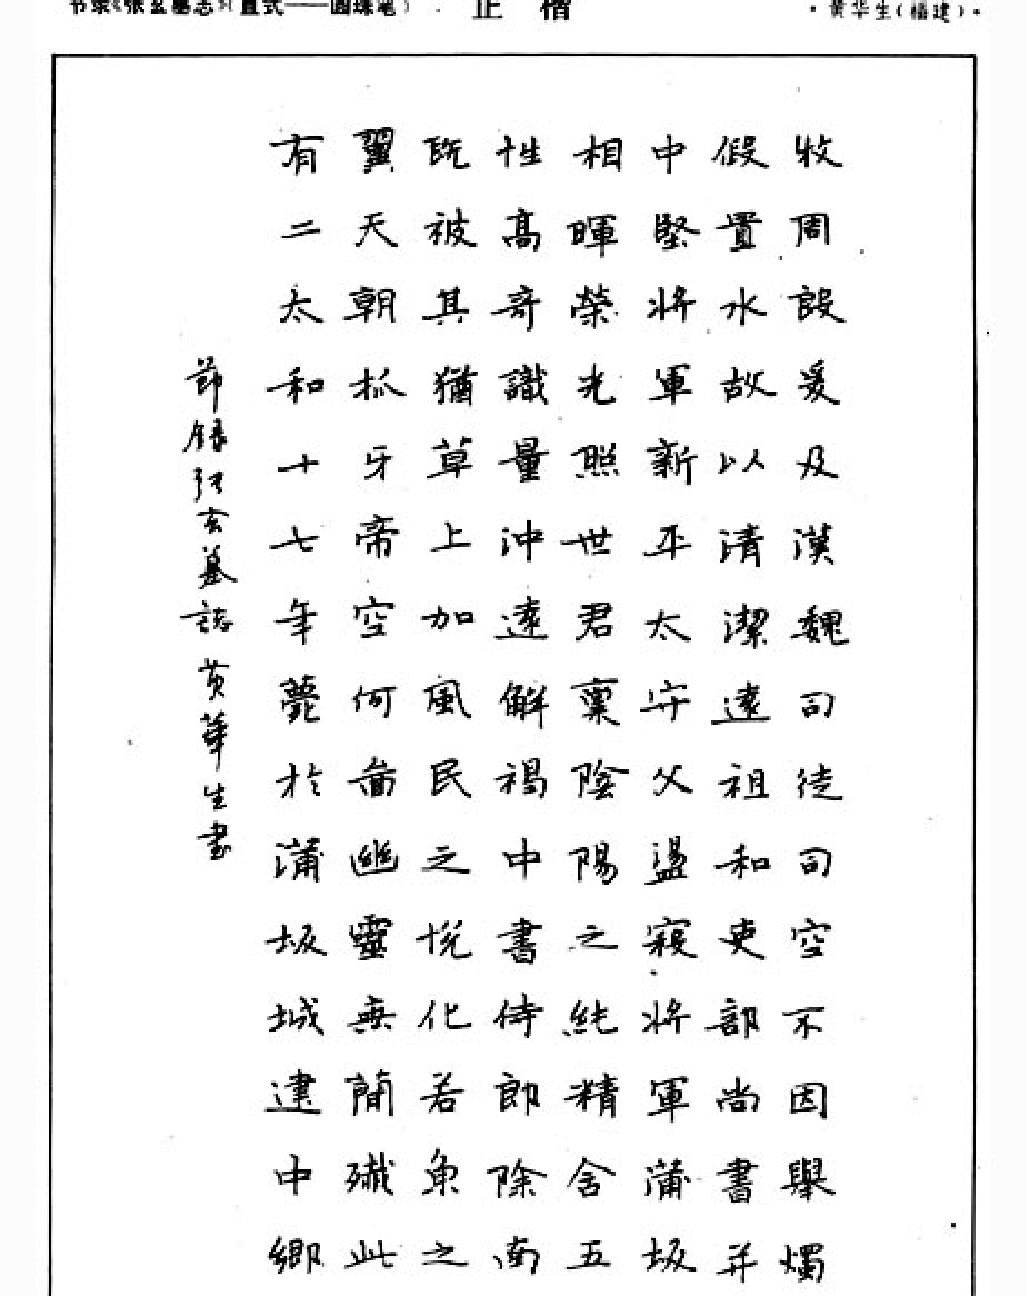 书录《张玄墓志》(直式——圆珠笔) · 正楷 · 黄华生(福建)·
牧周設爰及漢魏司徒司空不因舉燭
假置水故以清潔遠祖和吏部尚書并
中堅將軍新平太守父盪寇將軍蒲坂
相暉榮光照世君稟陰陽之純精含五
性高奇識量沖遠解褐中書侍郎除南
既被其猶草上加風民之悅化若魚之
翼天朝抓牙帝空何啚幽靈無簡殲此
有二太和十七年薨於蒲坂城建中鄉
節錄張玄墓誌 黄華生書